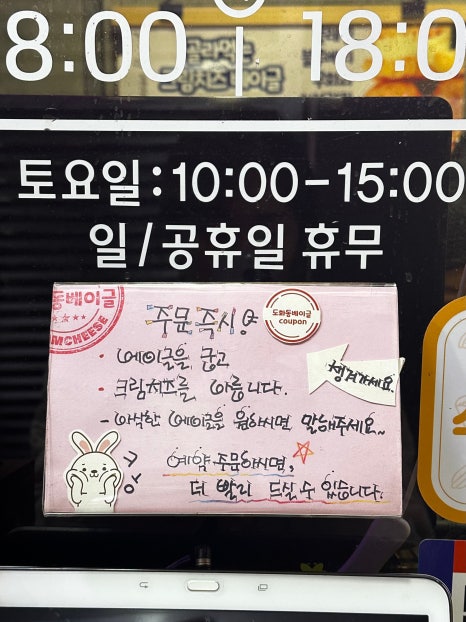 8:00 | 18:0
골라먹는
크림치즈 베이글
토요일:10:00-15:00
일/공휴일 휴무
동베이글
MCHEESE
주문 즉시
도화동베이글
coupon
· 베이글을 굽고
· 크림치즈를 바릅니다.
챙겨가세요.
- 바삭한 베이글을 원하시면 말해주세요~
예약 주문하시면,
더 빨리 드실 수 있습니다.